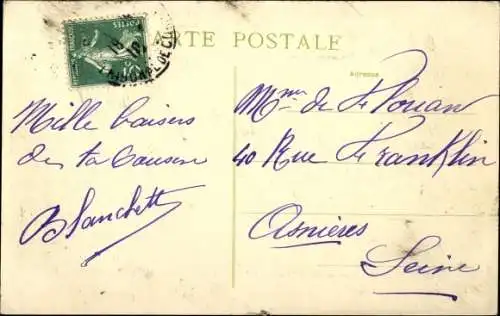 CARTE POSTALE
Adresse
POSTES
Mille baisers
de ta Cousine
Blanchette
Mme de Flouan
40 Rue Franklin
Asnières
Seine